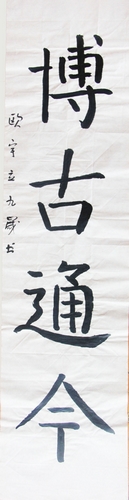 博古通今
欧宇立九岁书